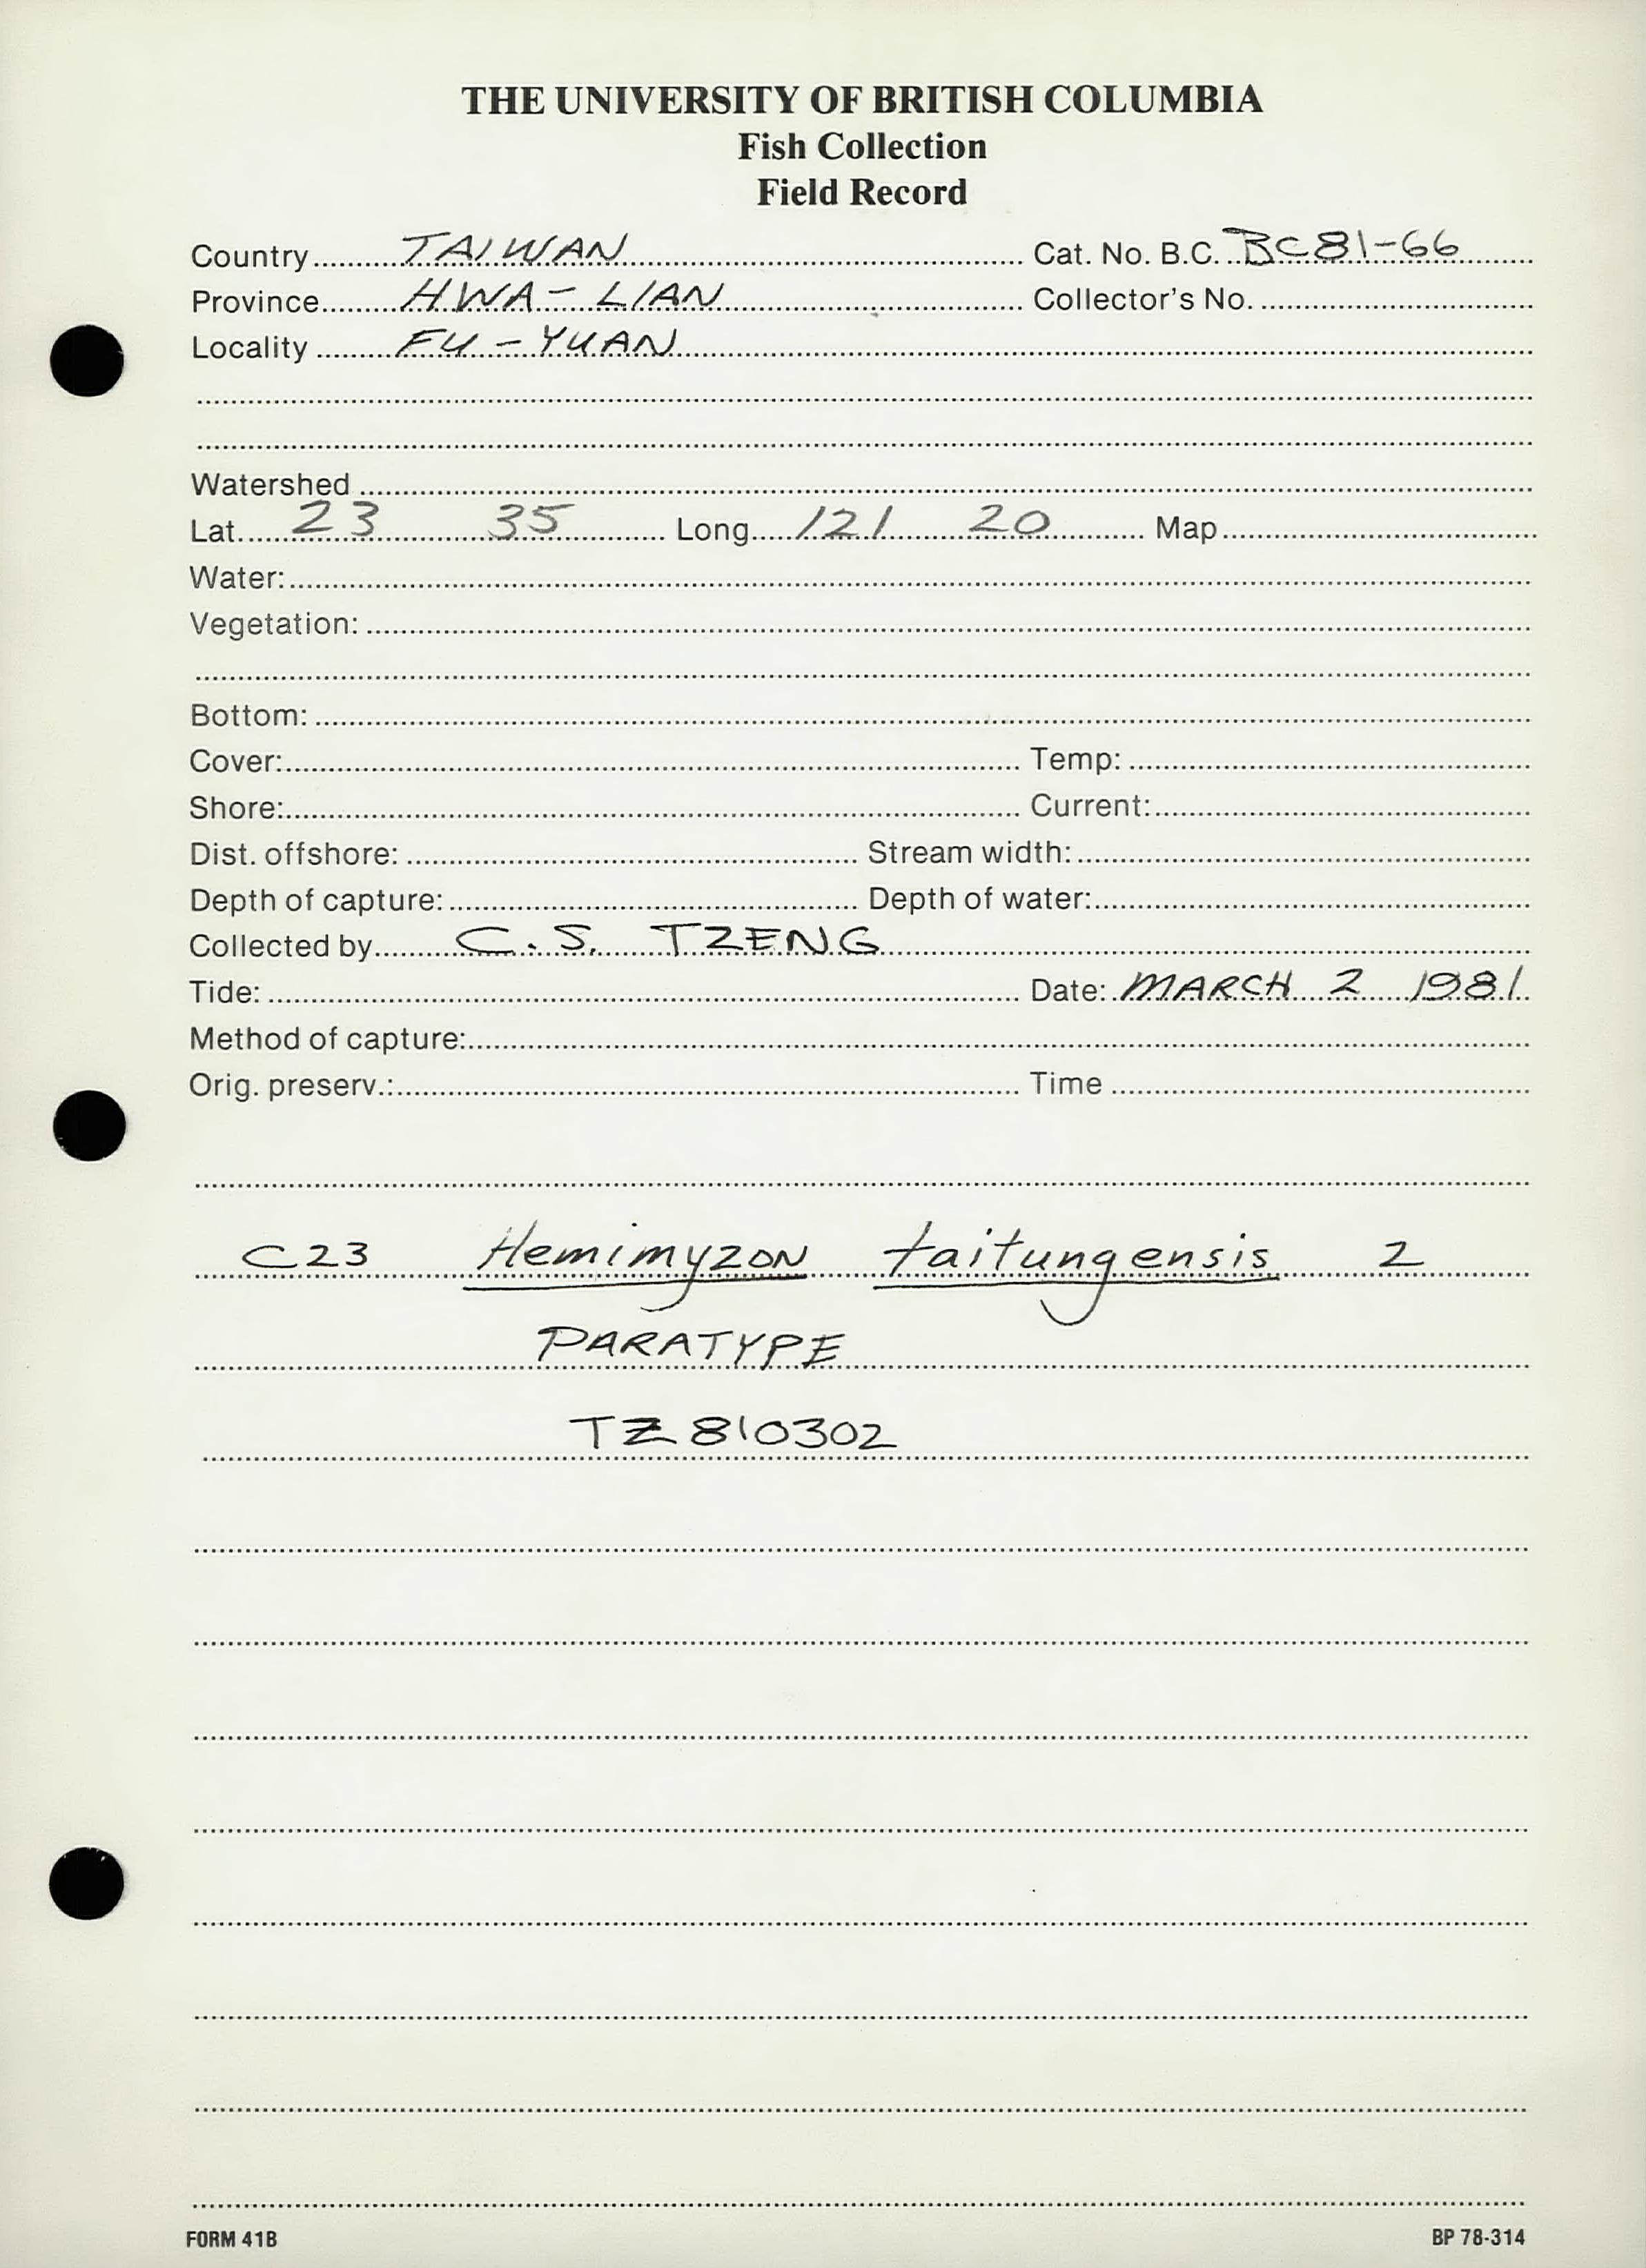 THE UNIVERSITY OF BRITISH COLUMBIA
Fish Collection
Field Record
Country TAIWAN Cat. No. B.C. BC81-66
Province HWA-LIAN Collector's No.
Locality FU-YUAN
Watershed
Lat. 23 35 Long. 121 20 Map
Water:
Vegetation:
Bottom:
Cover: Temp:
Shore: Current:
Dist. offshore: Stream width:
Depth of capture: Depth of water:
Collected by C. S. TZENG
Tide: Date: MARCH 2 1981
Method of capture:
Orig. preserv.: Time
C23 Hemimyzon taitungensis 2
PARATYPE
TZ810302
FORM 41B BP 78-314